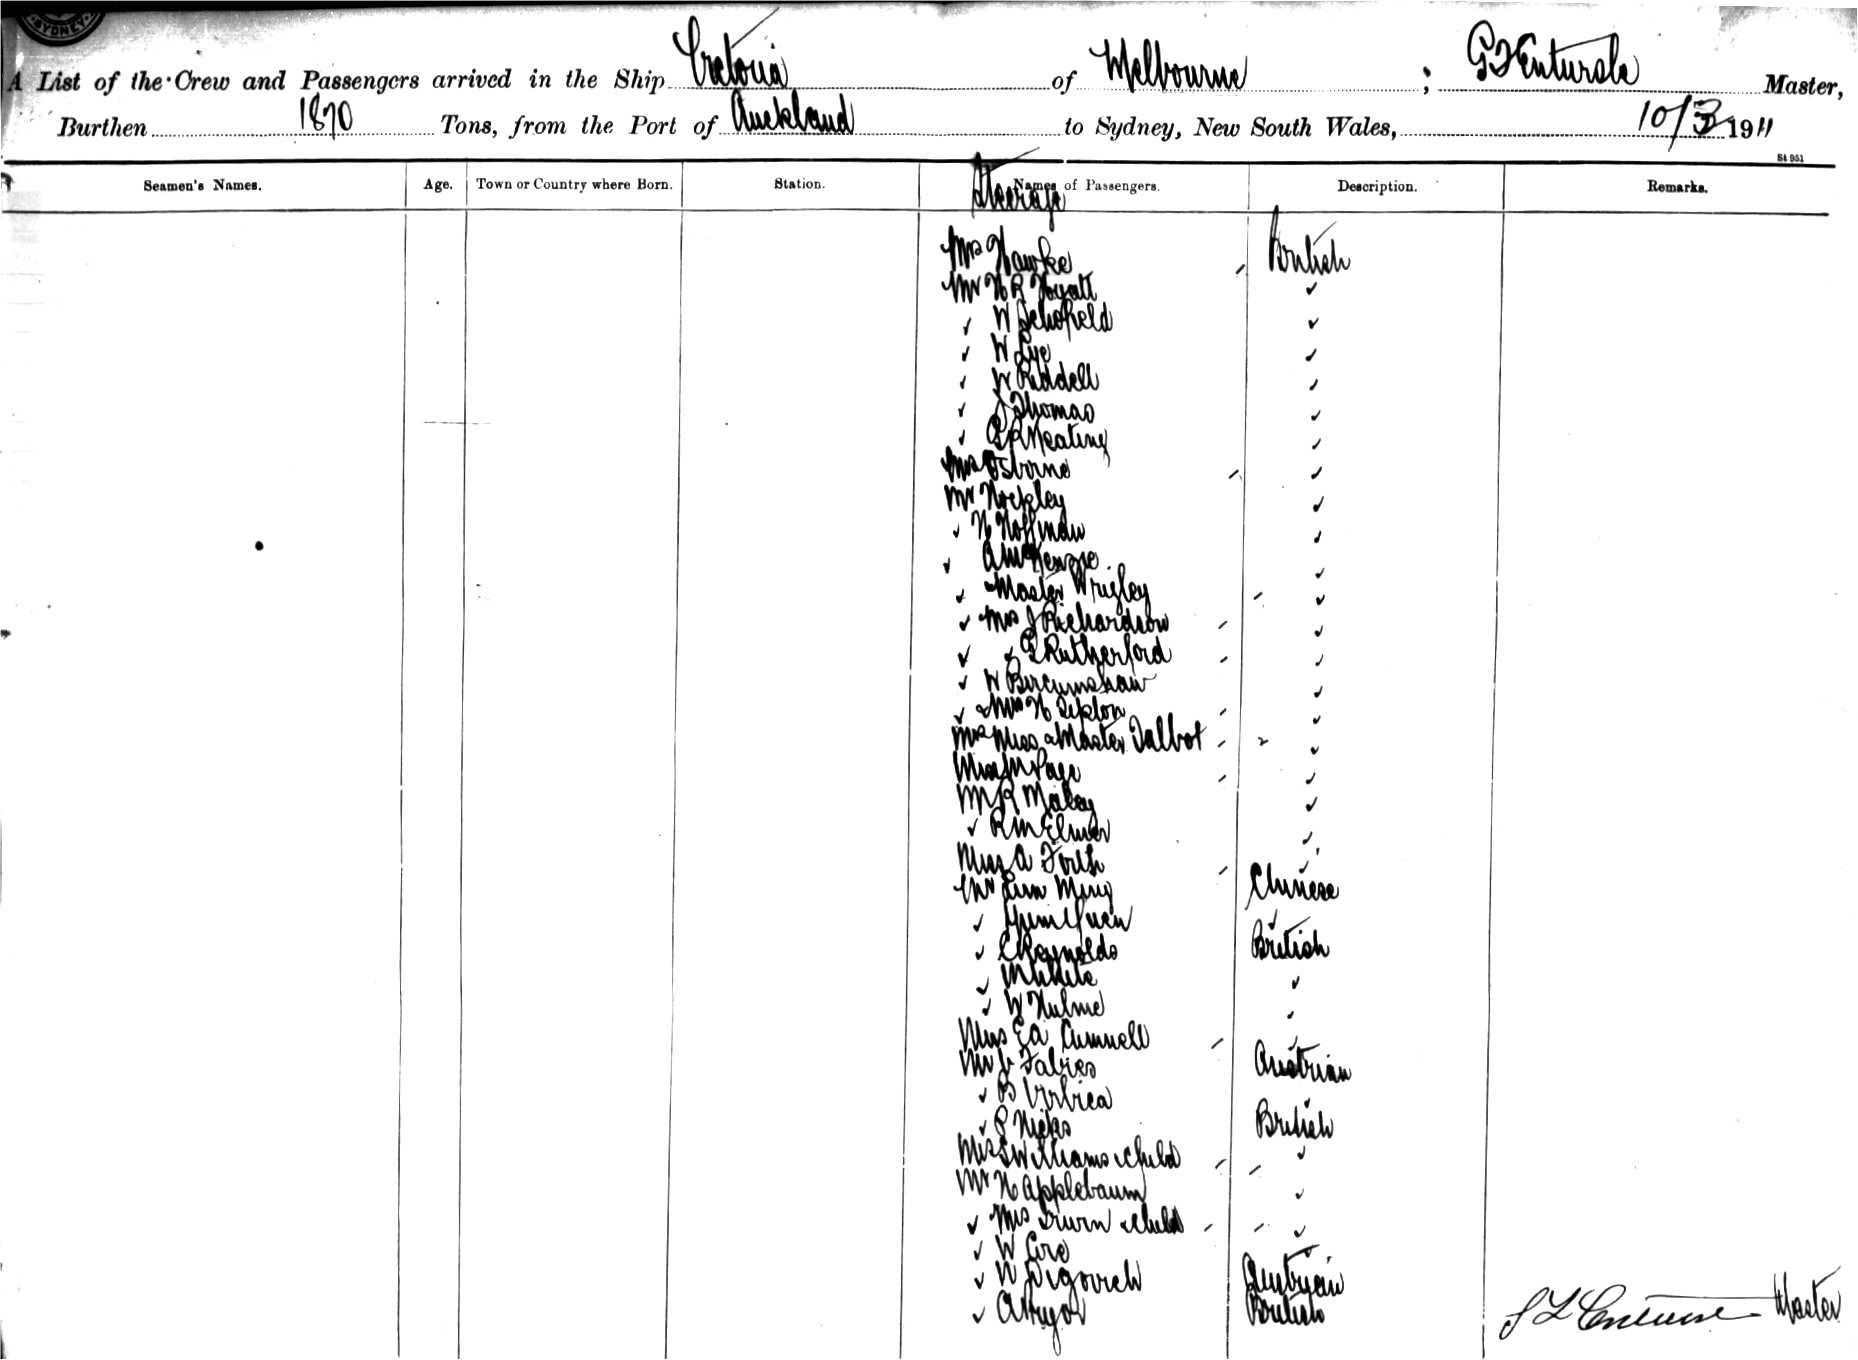 SYDNEY
A List of the Crew and Passengers arrived in the Ship Victoria of Melbourne ; Master,
Burthen 1870 Tons, from the Port of Auckland to Sydney, New South Wales, 10/3 1911
St 951
Seamen's Names. Age. Town or Country where Born. Station. Names of Passengers. Description. Remarks.
Steerage
Mrs Hawke British
Mr H R Hyatt ✓
✓ W Schofield ✓
✓ W Lye ✓
✓ W Riddell ✓
✓ J Thomas ✓
✓ Keating ✓
Mrs Osborne ✓
Mr Hockley ✓
✓ H Hoffman ✓
✓ A McKenzie ✓
✓ Master Wrigley ✓
✓ Mrs J Richardson ✓
✓ ✓ Rutherford ✓
✓ W Bircumshaw ✓
✓ H ✓
Mrs Miss & Master Talbot ✓
Miss M Page ✓
Mr R Maley ✓
✓ R McElmer ✓
Miss A Forth
Mr Lum Ming Chinese
✓ Yum Yuen ✓
✓ C Reynolds British
✓ White ✓
✓ W Hulme
Miss E A Cumnell
Mr V Fabres Austrian
✓ B
✓ P Hicks British
Mrs S Williams & child ✓
Mr H Applebaum ✓
✓ Mrs Irwin & child ✓
✓ W
✓ Austrian
✓ A Pryor British
Master